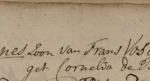 nes Zoon van Frans Vos
get Cornelia de